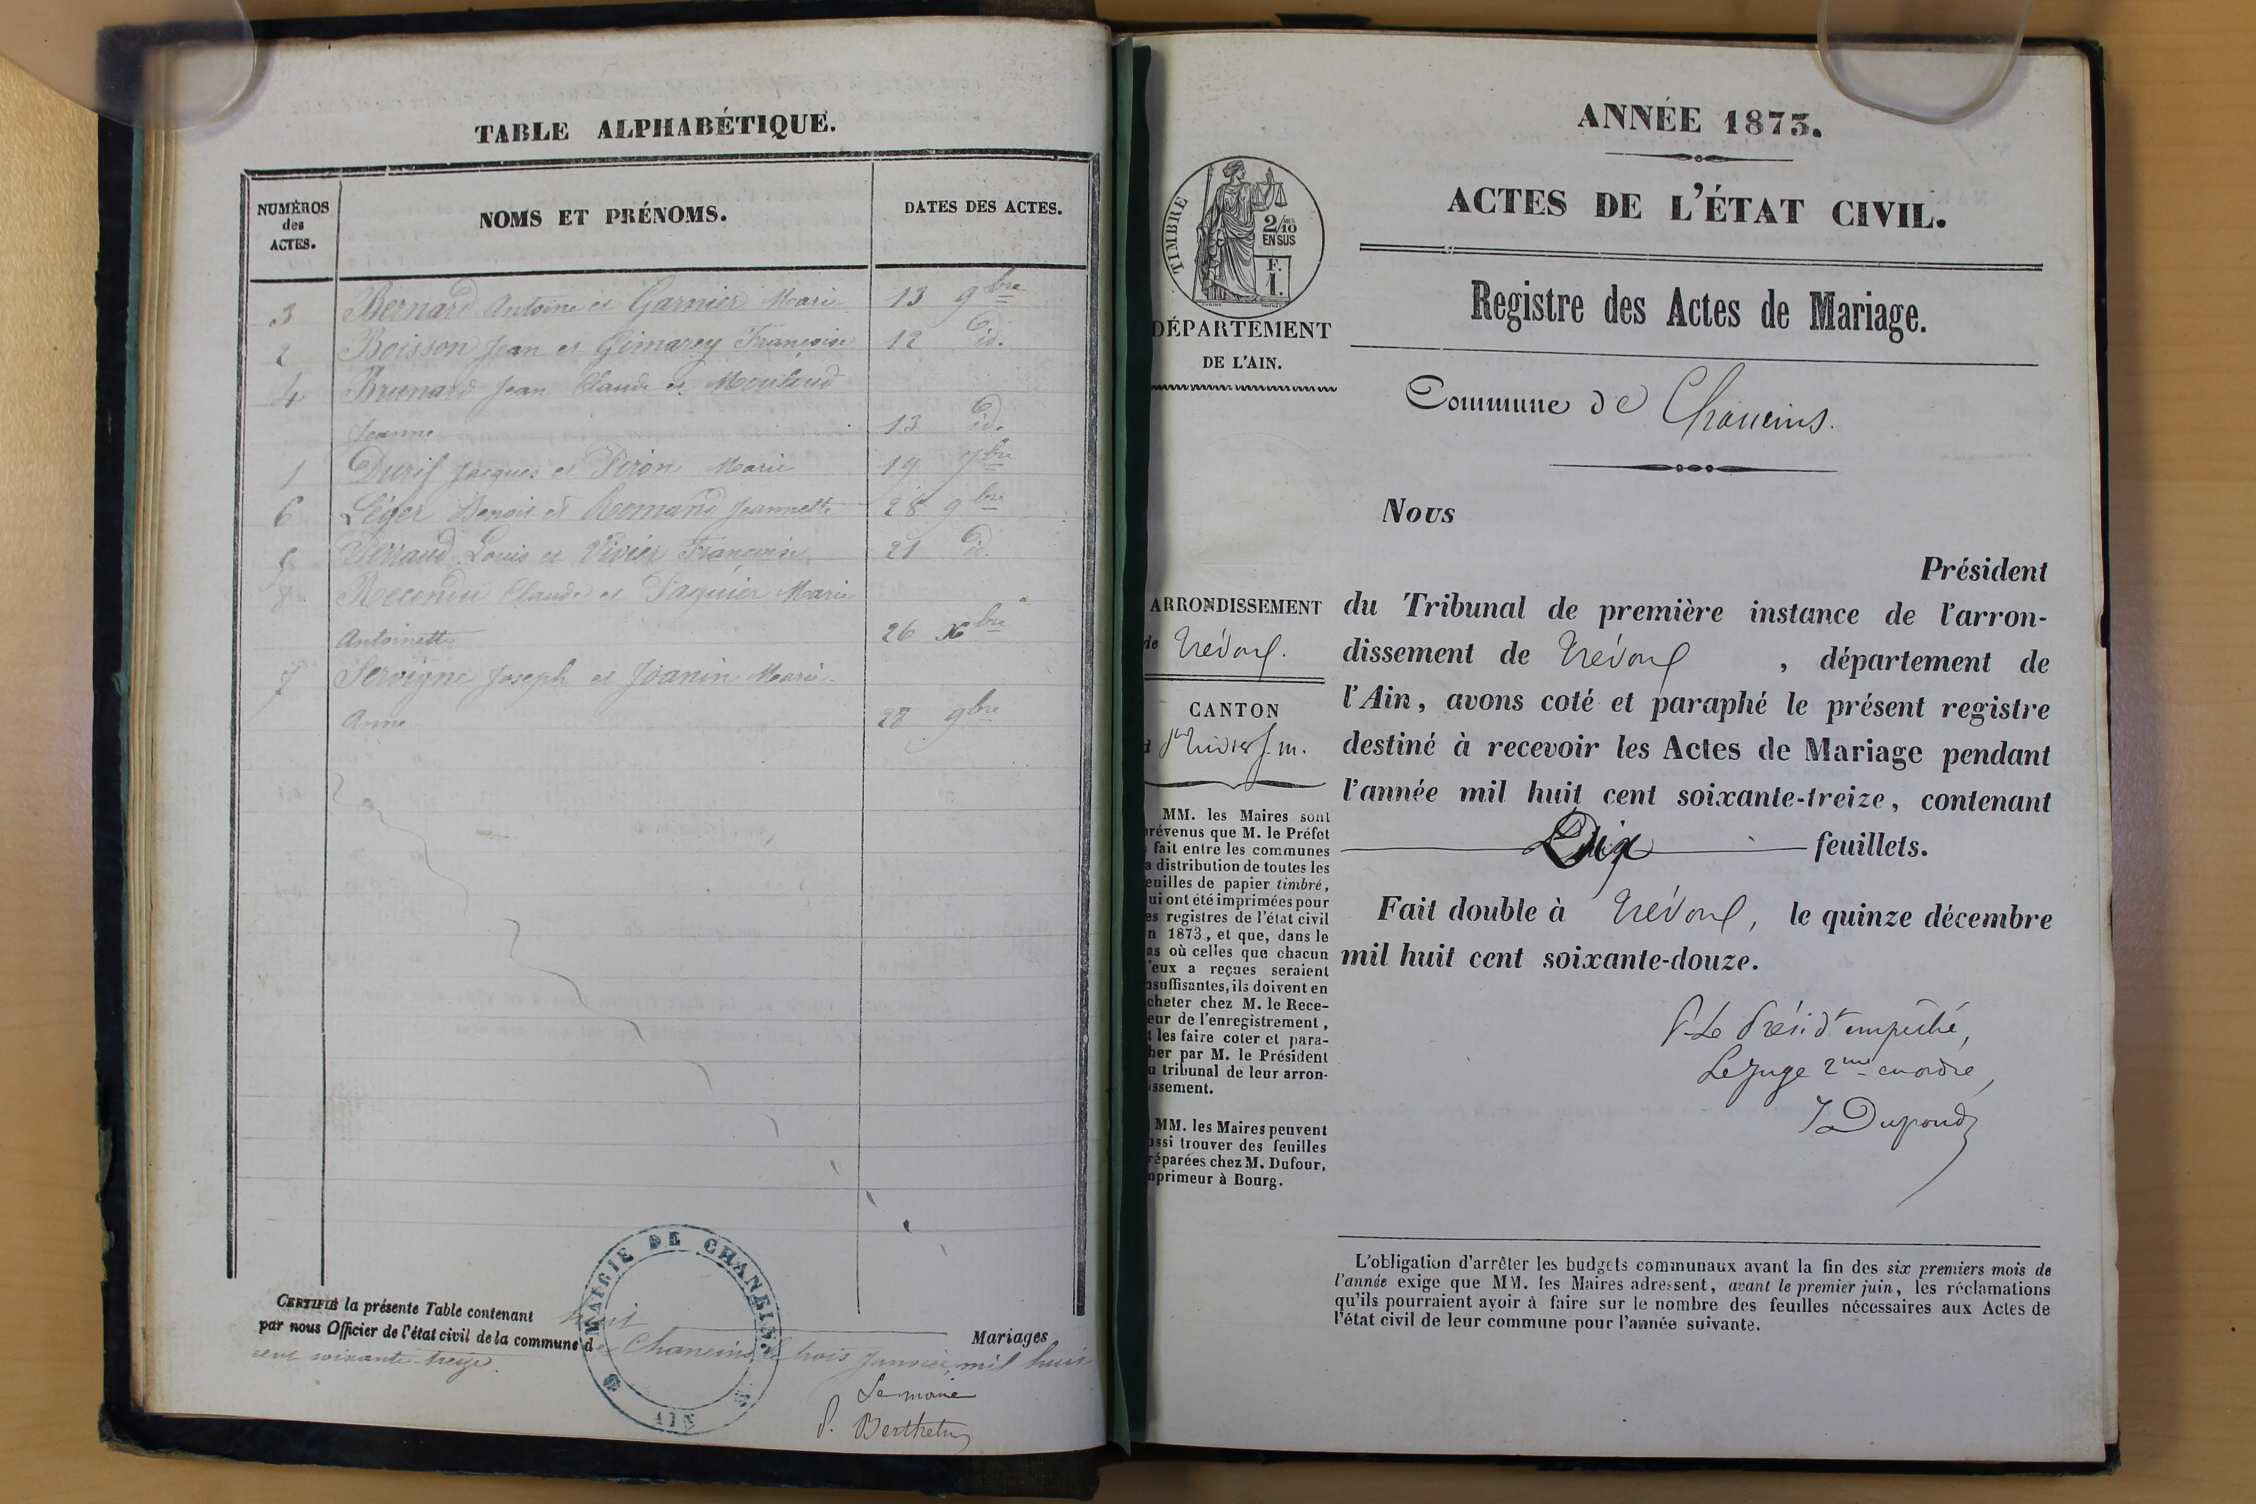 TABLE ALPHABÉTIQUE.
NUMÉROS
des
ACTES.
NOMS ET PRÉNOMS.
DATES DES ACTES.
3 Bernard Antoine et Garnier Marie 13 9bre
2 Boisson Jean et Gimarey Françoise 12 id.
4 Brunard Jean Claude et Mouiloud
Jeanne 13 id.
1 Durif Jacques et Piron Marie 19 7bre
6 Léger Benoit et Romand Jeannette 28 9bre
5 Perraud Louis et Vivier Françoise 21 id.
8 Recondu Claude et Paquier Marie
Antoinette 26 Xbre
7 Servigne Joseph et Joanin Marie
Anne 28 9bre
CERTIFIÉ la présente Table contenant huit Mariages
par nous Officier de l'état civil de la commune de Chaneins le trois Janvier mil huit
cent soixante-treize.
MAIRIE DE CHANEINS
AIN
Le maire
P. Berthelon
ANNÉE 1873.
ACTES DE L'ÉTAT CIVIL.
Registre des Actes de Mariage.
TIMBRE
2/10
EN SUS
F.
1.
DÉPARTEMENT
DE L'AIN.
Commune de Chaneins.
Nous
Président
du Tribunal de première instance de l'arron-
dissement de Trévoux , département de
l'Ain, avons coté et paraphé le présent registre
destiné à recevoir les Actes de Mariage pendant
l'année mil huit cent soixante-treize, contenant
Dix feuillets.
Fait double à Trévoux, le quinze décembre
mil huit cent soixante-douze.
P. Le Présidt empêché,
Le Juge 2me en ordre,
J Dupond
ARRONDISSEMENT
de Trévoux.
CANTON
d St Trivier s. m.
MM. les Maires sont
prévenus que M. le Préfet
a fait entre les communes
la distribution de toutes les
feuilles de papier timbré,
qui ont été imprimées pour
les registres de l'état civil
en 1873, et que, dans le
cas où celles que chacun
d'eux a reçues seraient
insuffisantes, ils doivent en
acheter chez M. le Rece-
veur de l'enregistrement,
et les faire coter et para-
pher par M. le Président
du tribunal de leur arron-
dissement.
MM. les Maires peuvent
aussi trouver des feuilles
préparées chez M. Dufour,
imprimeur à Bourg.
L'obligation d'arrêter les budgets communaux avant la fin des six premiers mois de
l'année exige que MM. les Maires adressent, avant le premier juin, les réclamations
qu'ils pourraient avoir à faire sur le nombre des feuilles nécessaires aux Actes de
l'état civil de leur commune pour l'année suivante.